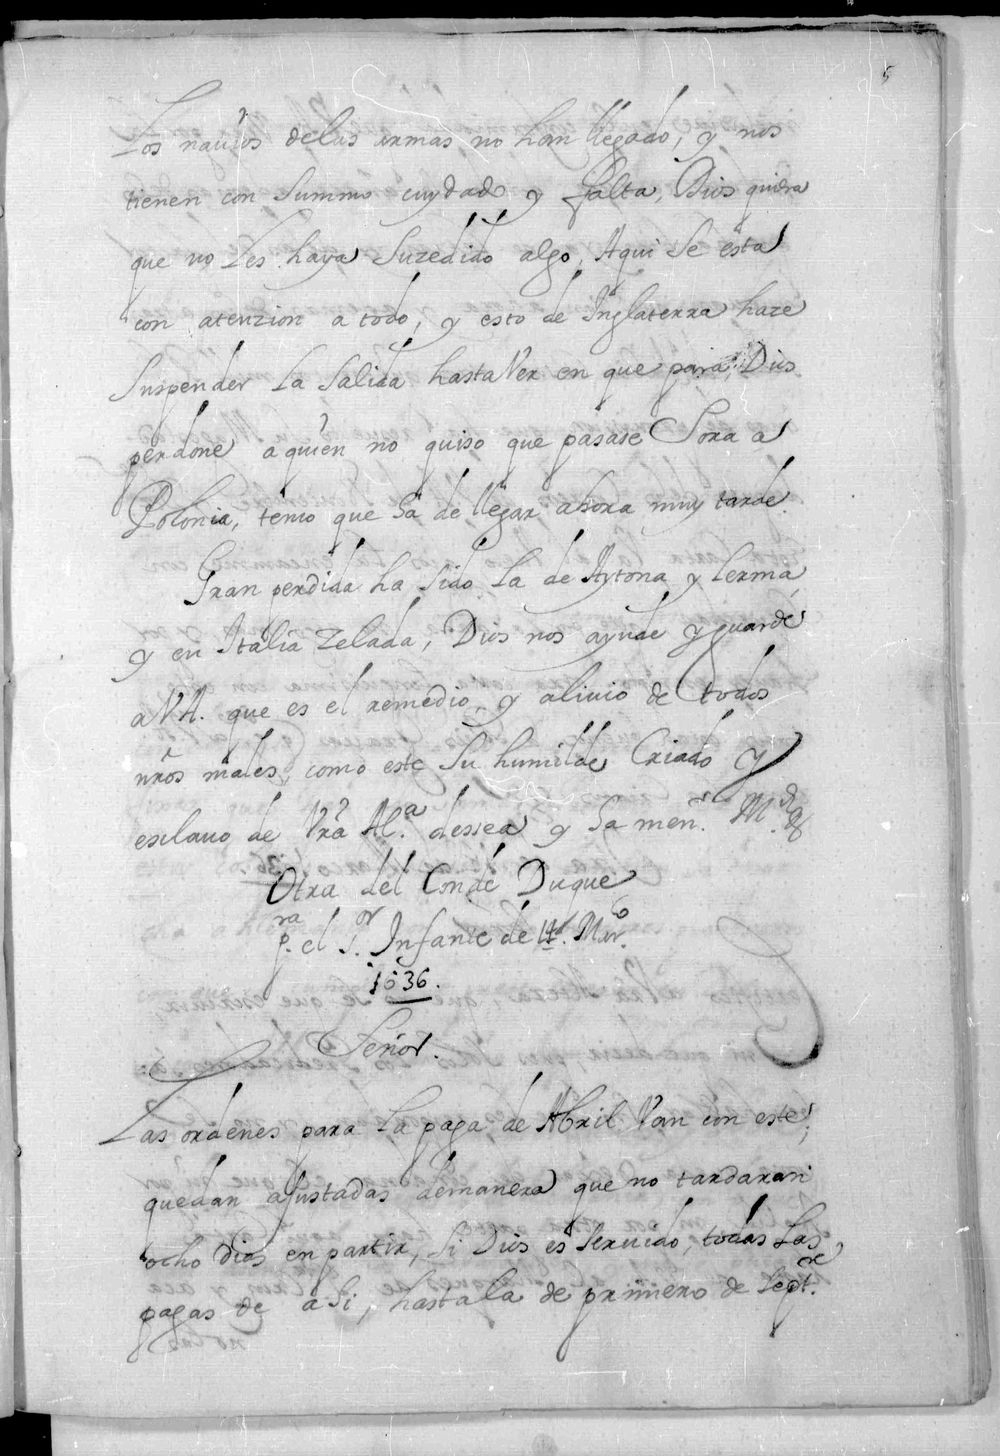 5
Los nauios delas armas no han llegado, y nos
tienen con summo cuydado y falta, Dios quiera
que no les haya suzedido algo. Aqui se está
con atenzion a todo, y esto de Inglaterra haze
suspender la salida hasta Ver en que para, Dios
perdone aquien no quiso que pasase Sora a
Polonia, temo que ha de llegar ahora muy tarde.
Gran perdida ha sido la de Aytona y lerma,
y en Italia Zelada, Dios nos ayude y guarde
a VA. que es el remedio, y aliuio de todos
nrõs males, como este su humilde Criado y
esclauo de Vrã Al.ª dessea y ha men.r
Otra del Conde Duque
p.ra el S.or Infante de 14. Mar.o
1636.
Señor.
Las ordenes para la paga de Abril Van con este;
quedan ajustadas demanera que no tardaran
ocho dias en partir, si Dios es seruido, todas las
pagas de a si, hasta la de primero de Sept.re